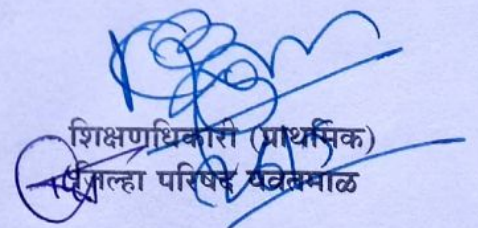 शिक्षणाधिकारी (प्राथमिक)
जिल्हा परिषद यवतमाळ